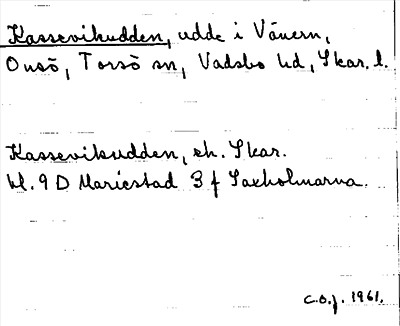 Kassevikudden, udde i Vänern,
Onsö, Torsö sn, Vadsbo hd, Skar. l.
Kassevikudden, ek. Skar.
bl. 9 D Mariestad 3 f Laxholmarna.
C.O.J. 1961.